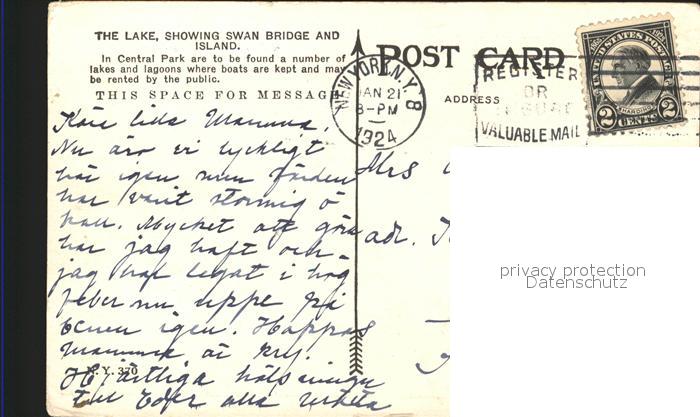 THE LAKE, SHOWING SWAN BRIDGE AND
ISLAND.
In Central Park are to be found a number of
lakes and lagoons where boats are kept and may
be rented by the public.
THIS SPACE FOR MESSAGE
POST CARD
ADDRESS
NEW YORK, N.Y. 8
JAN 21
8-PM
1924
REGISTER
OR
VALUABLE MAIL
UNITED STATES POSTAGE
HARDING
2 CENTS 2
Kära lilla Mamma,
Nu äro vi lyckligt
här igen men färden
har varit stormig o
kall. Mycket att göra
har jag haft och
jag har legat i hög
feber nu uppe på
benen igen. Hoppas
Mamma är kry.
Hjärtliga hälsningar
till Eder alla
Mrs
adr.
N.Y. 370
privacy protection
Datenschutz